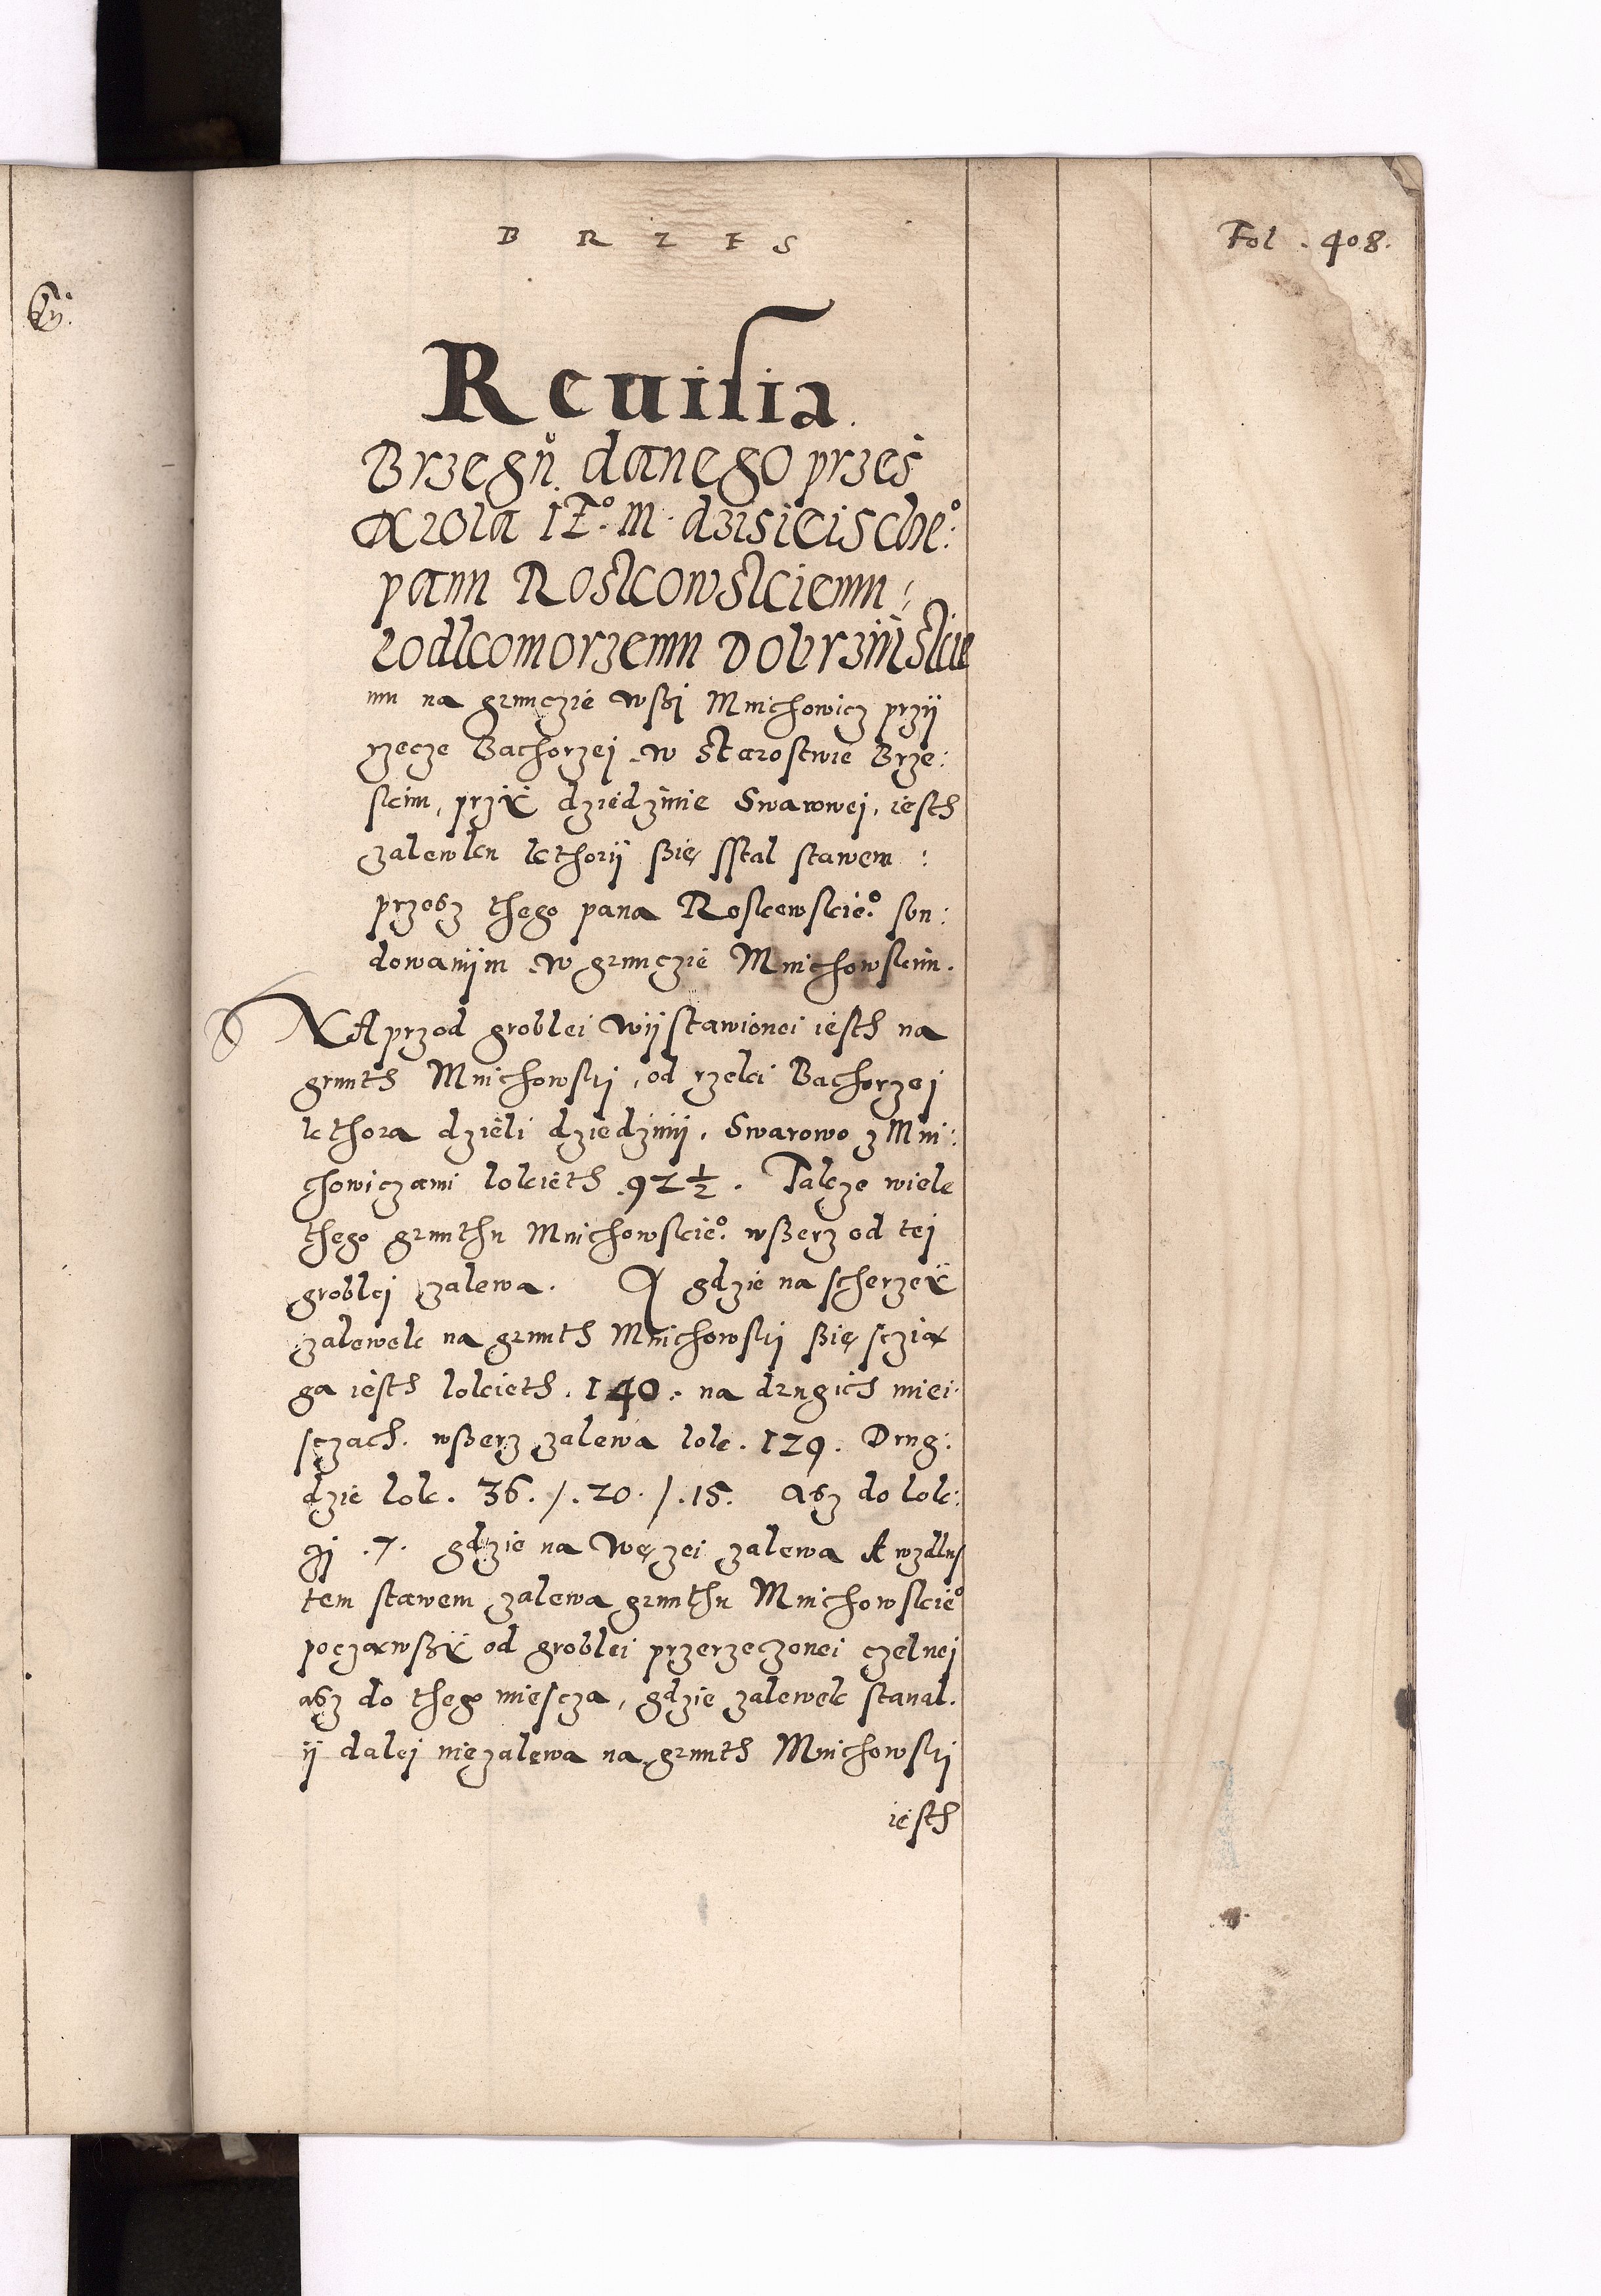 B R Z E S
Fol . 408.
Reuisia.
Brzegu danego przes
Krola JE°. M. dzisieische°:
panu Roskowskiemu,
Podkomorzemu Dobrzÿnskie
mu na grunczie wssi Mnichowicz przÿ
rzecze Bachorzej w Starostwie Brze:
skim, przÿ dziedzinie Swarowej, iesth
zalewku kthorÿ ssię sstal stawem :
przesz thego pana Roskowskie°. son:
dowanÿm w grunczie Mnichowskim.
NAprzod groblei wÿstawionei iesth na
grunth Mnichowski, od rzeki Bachorzej
kthora dzieli dziedzinÿ, Swarowo z Mni:
chowiczami lokieth .92½. Takze wiele
thego grunthu Mnichowskie°. wsserz od tej
groblej zalewa. A gdzie na scherzeÿ
zalewek na grunth Mnichowski ssię sczią
ga iesth lokieth . 140 . na drugich miei:
sczach. wsserz zalewa lok. 129. Drug:
dzie lok. 36. /. 20. /. 15. asz do lok:
czj .7. gdzie na węzei zalewa A wzdlus
tem stawem zalewa grunthu Mnichowskie°
począwssÿ od groblei przerzeczonei czelnej
asz do thego miescza, gdzie zalewek stanal.
ÿ dalej niezalewa na grunth Mnichowski
iesth